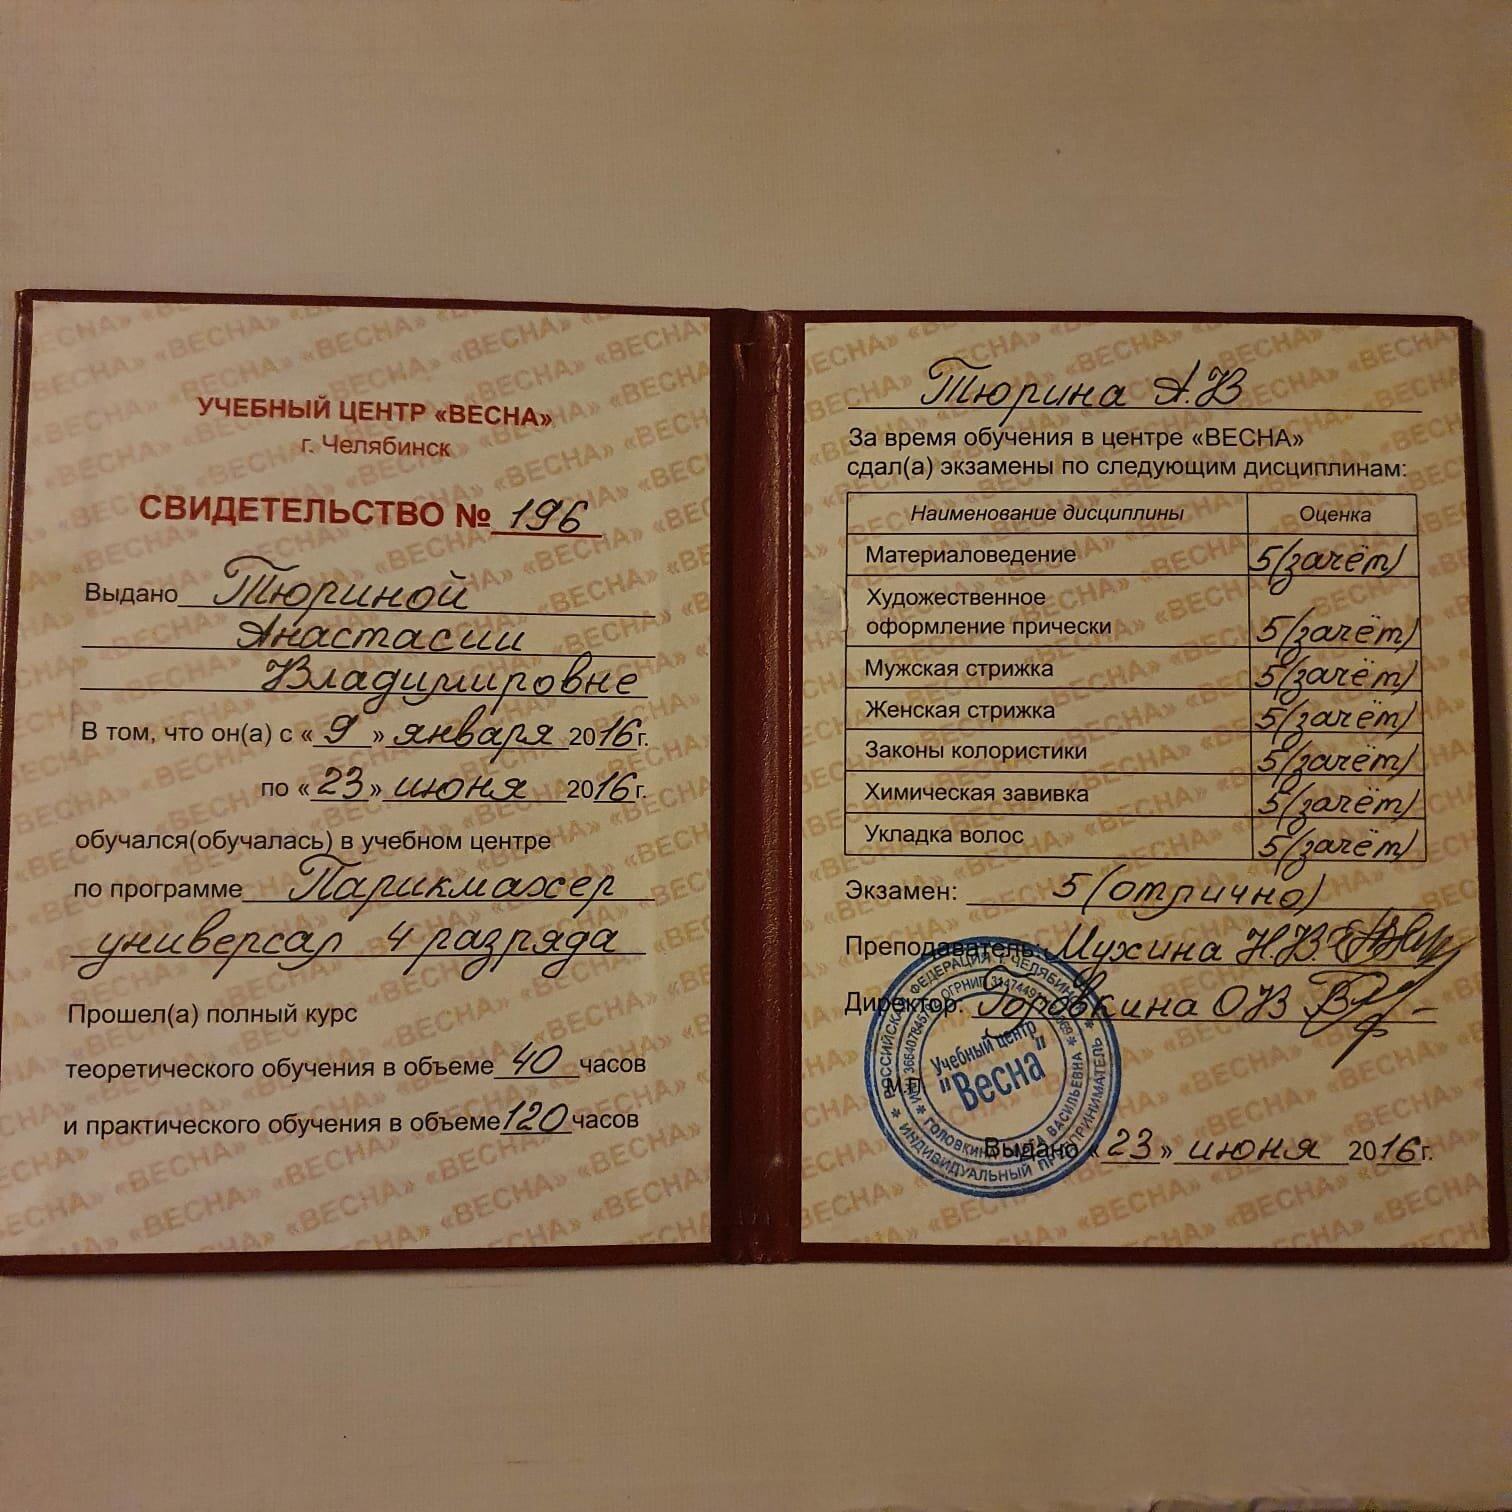 УЧЕБНЫЙ ЦЕНТР «ВЕСНА»
г. Челябинск
СВИДЕТЕЛЬСТВО № 196
Выдано Тюриной
Анастасии
Владимировне
В том, что он(а) с «9» января 2016г.
по «23» июня 2016г.
обучался(обучалась) в учебном центре
по программе Парикмахер
универсал 4 разряда
Прошел(а) полный курс
теоретического обучения в объеме 40 часов
и практического обучения в объеме 120 часов
Тюрина А.В
За время обучения в центре «ВЕСНА»
сдал(а) экзамены по следующим дисциплинам:
Наименование дисциплины Оценка
Материаловедение 5(зачёт)
Художественное
оформление прически 5(зачёт)
Мужская стрижка 5(зачёт)
Женская стрижка 5(зачёт)
Законы колористики 5(зачёт)
Химическая завивка 5(зачёт)
Укладка волос 5(зачёт)
Экзамен: 5(отлично)
Преподаватель: Мухина Н.В.
Директор: Головкина ОВ
М.П.
Учебный центр
"Весна"
РОССИЙСКАЯ ФЕДЕРАЦИЯ Г. ЧЕЛЯБИНСК
ИНДИВИДУАЛЬНЫЙ ПРЕДПРИНИМАТЕЛЬ
ГОЛОВКИНА ВАСИЛЬЕВНА
Выдано «23» июня 2016г.